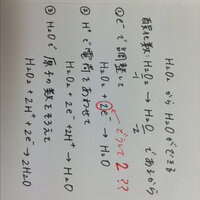 H₂O₂ から H₂O ができる
酸化数 H₂O₂ → H₂O であるから
-1 -2
① e⁻ で調整して
H₂O₂ + 2e⁻ → H₂O
どうして2??
② H⁺ で電荷をあわせて
H₂O₂ + 2e⁻ + 2H⁺ → H₂O
③ H₂O で原子の数をそろえて
H₂O₂ + 2H⁺ + 2e⁻ → 2H₂O